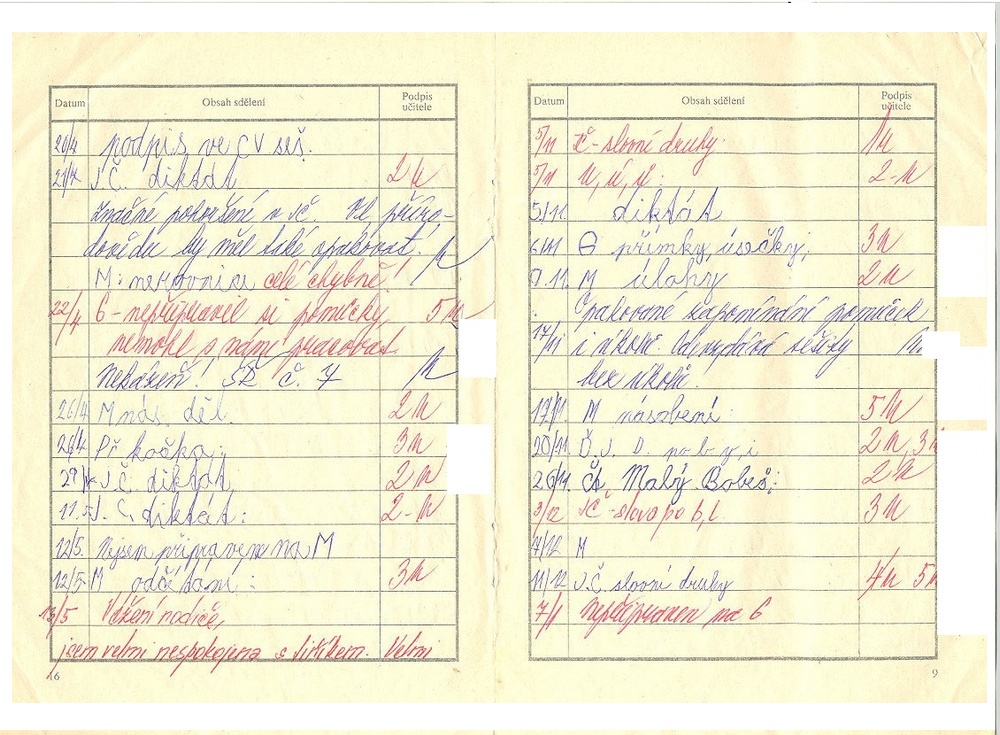 Datum Obsah sdělení Podpis učitele
20/4 podpis ve CV seš.
21/4 JČ. diktát 2
Značné pohoršení v JČ. Ve příro-
dovědu by měl také opakovat.
M: nerovnice celé chybně!
22/4 G - nepřipravil si pomůcky,
nemohl s námi pracovat. 5
Nekázeň! č. 7
26/4 M nás. děl. 2
26/4 Př kočka; 3
29/4 J.Č. diktát. 2
11.5. J. Č. diktát: 2-
12/5. Nejsem připraven na M
12/5 M odčítání: 3
13/5 Vážení rodiče,
jsem velmi nespokojena s Jiříkem. Velmi
16
Datum Obsah sdělení Podpis učitele
5/11 JČ - slovní druhy. 1
5/11 U, ú, ů: 2-
5/11. diktát
6/11 G přímky, úsečky; 3
M úlohy 2
opakované zapomínání pomůcek
17/11 i úkolů. Odevzdává sešity
bez úkolů.
17/11. M násobení: 5
20/11 Č. J. D. po b y, i 2, 3
26/11. Čt. Malý Bobeš; 2
3/12 JČ - slova po b, l. 3
7/12 M
11/12 J.Č. slovní druhy 4 5
7/1 Nepřipraven na G
9